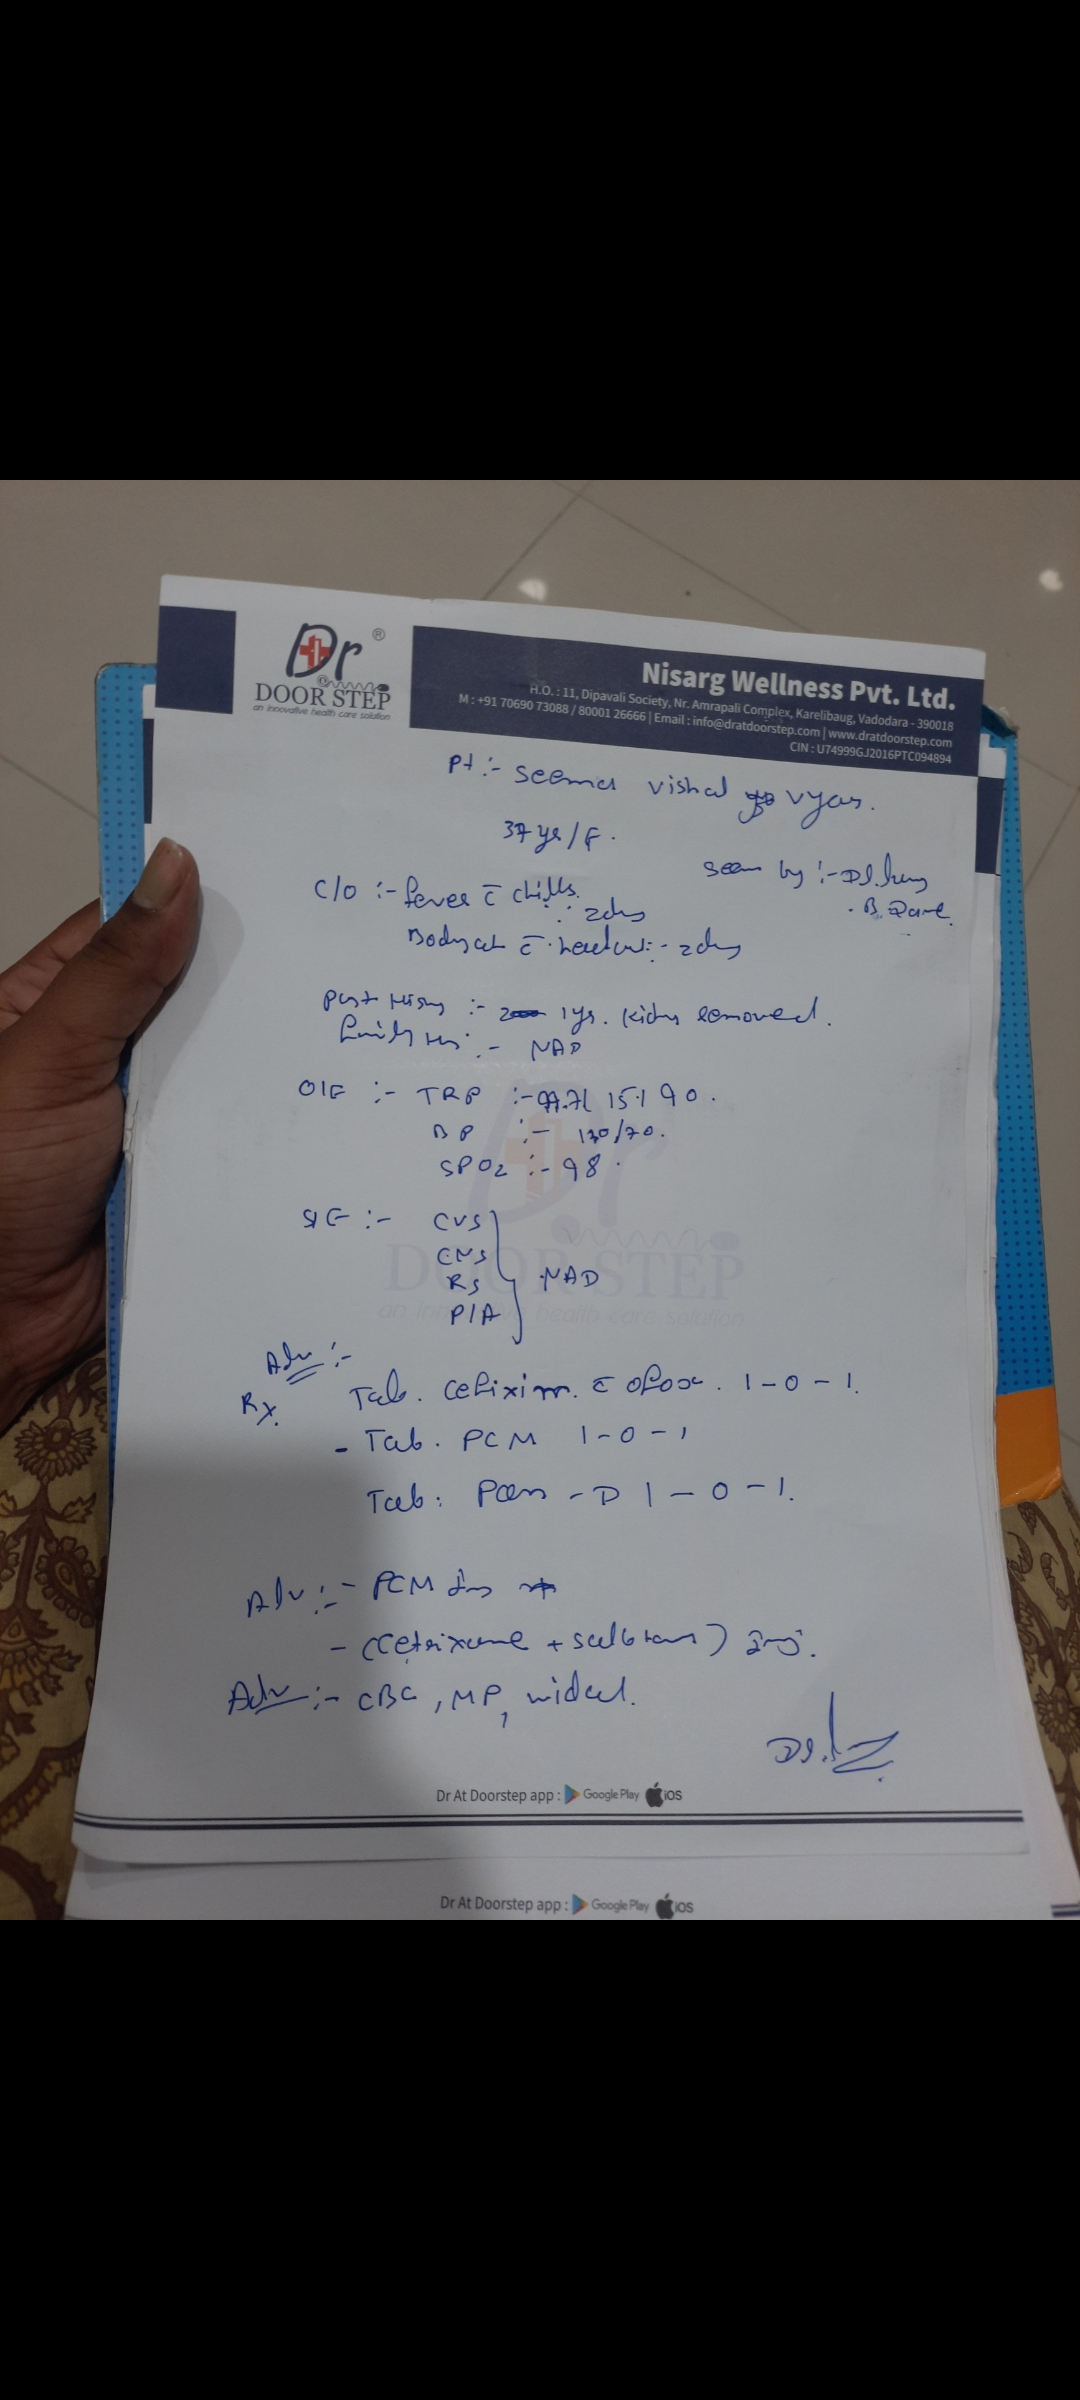 Dr ®
@
DOOR STEP
an innovative health care solution
Nisarg Wellness Pvt. Ltd.
H.O. : 11, Dipavali Society, Nr. Amrapali Complex, Karelibaug, Vadodara - 390018
M : +91 70690 73088 / 80001 26666 | Email : info@dratdoorstep.com | www.dratdoorstep.com
CIN : U74999GJ2016PTC094894
Pt :- Seema vishal vyas.
37 yr / F.
Seen by :- Dr.
C/O :- fever c̄ chills :- 2dys
Bodyach c̄ headach :- 2dys
Past History :- 1 yr. kidny removed.
Family His :- NAD
O/E :- TRP :- 99.7/ 15/ 90.
BP :- 130/70.
SPO2 :- 98.
S/E :- CVS
CNS
RS
P/A
NAD
Adv :-
Rx
Tab. Cefixim. c̄ oflox. 1-0-1.
- Tab. PCM 1-0-1
Tab. Pan - D 1-0-1.
Adv :- PCM inj
- (Cetrixone + Salbtam) inj.
Adv :- CBC, MP, widal.
Dr.
Dr At Doorstep app : Google Play iOS
Dr At Doorstep app : Google Play iOS